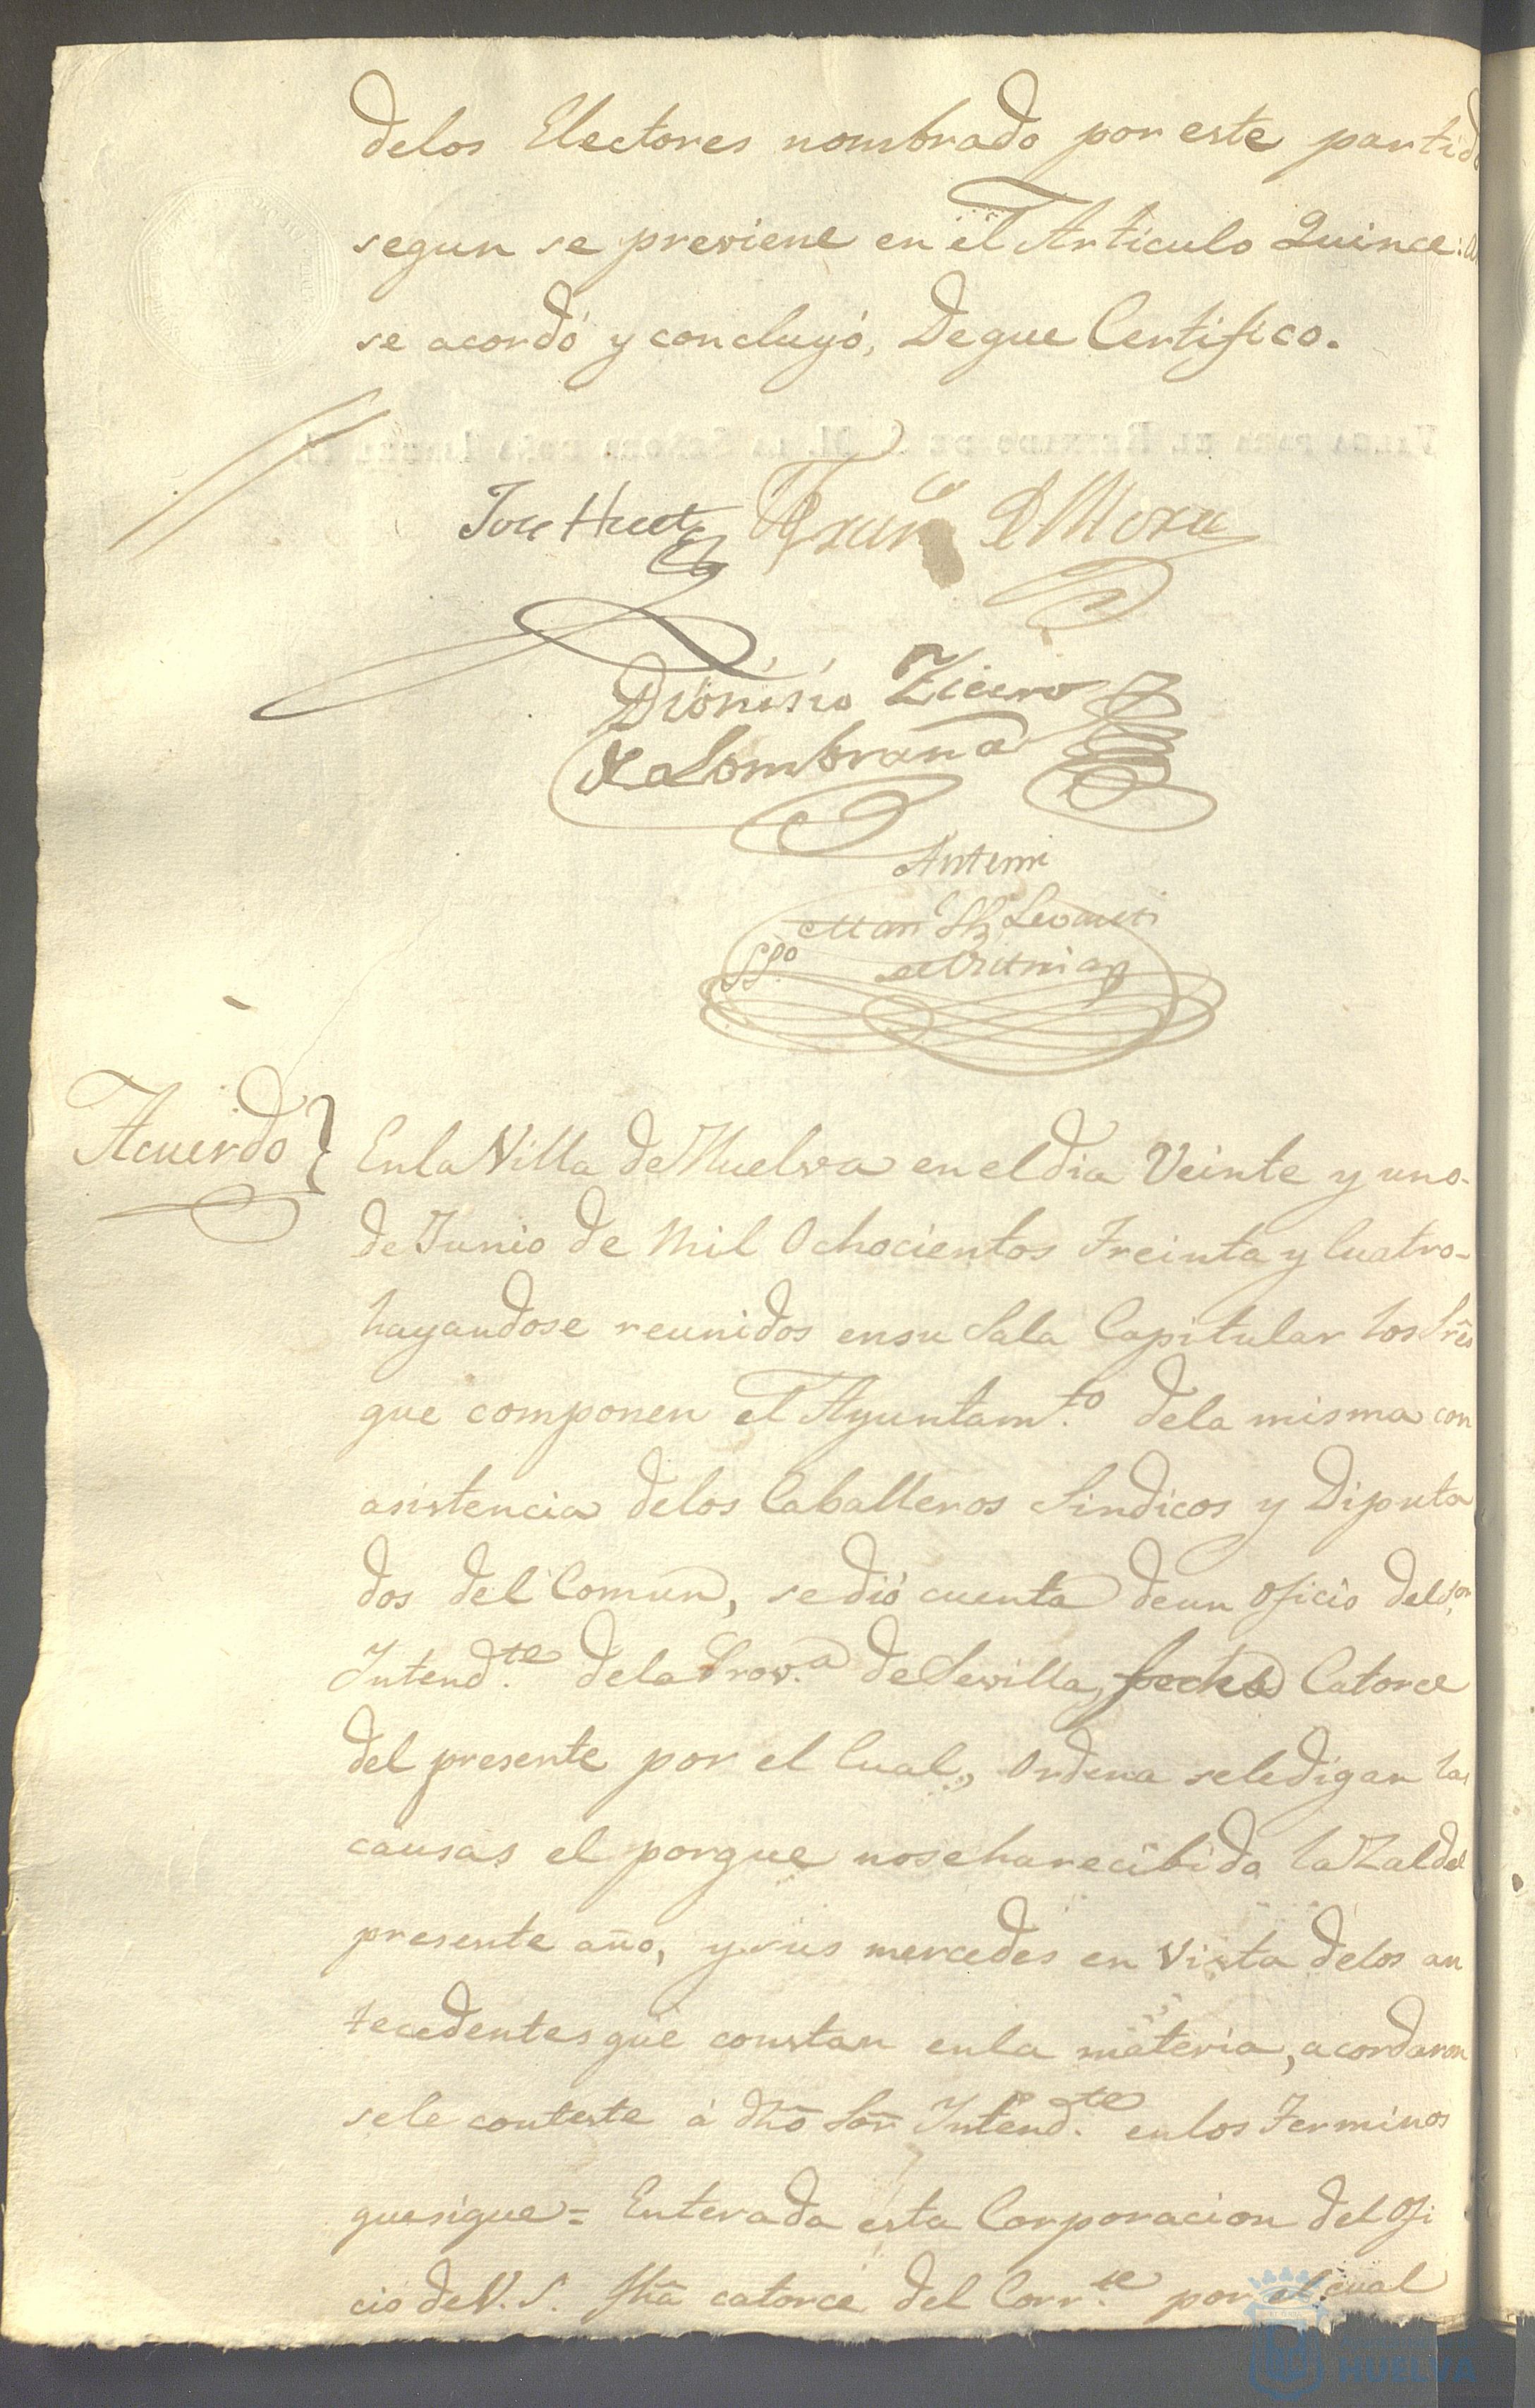 delos Electores nombrado por este partido
segun se previene en el Articulo Quince:
se acordó y concluyó, Deque Certifico.
VALGA PARA EL REINADO DE S. M. LA SEÑORA DOÑA ISABEL II.
Jose Huet Franco D Mora
Dionisio Ziezo
de la Sombrana
Antemi
Man
SSno
Acuerdo
En la Villa de Huelva en el dia Veinte y uno
de Junio de Mil Ochocientos Treinta y Cuatro
hayandose reunidos ensu Sala Capitular los Sres
que componen el Ayuntamto dela misma con
asistencia delos Caballeros Sindicos y Diputa
dos del Comun, se dió cuenta deun oficio del Sor
Intendte dela Prova de Sevilla, fecha Catorce
del presente por el Cual, Ordena seledigan las
causas el porque noseharecibido la Zal del
presente año, y sus mercedes en Vista delos an
tecedentes que constan enla materia, acordaron
sele conteste á dho Sor Intendte enlos Terminos
quesigue = Enterada esta Corporacion del Ofi
cio de V. S. fha catorce del Corrte por el cual
HUELVA